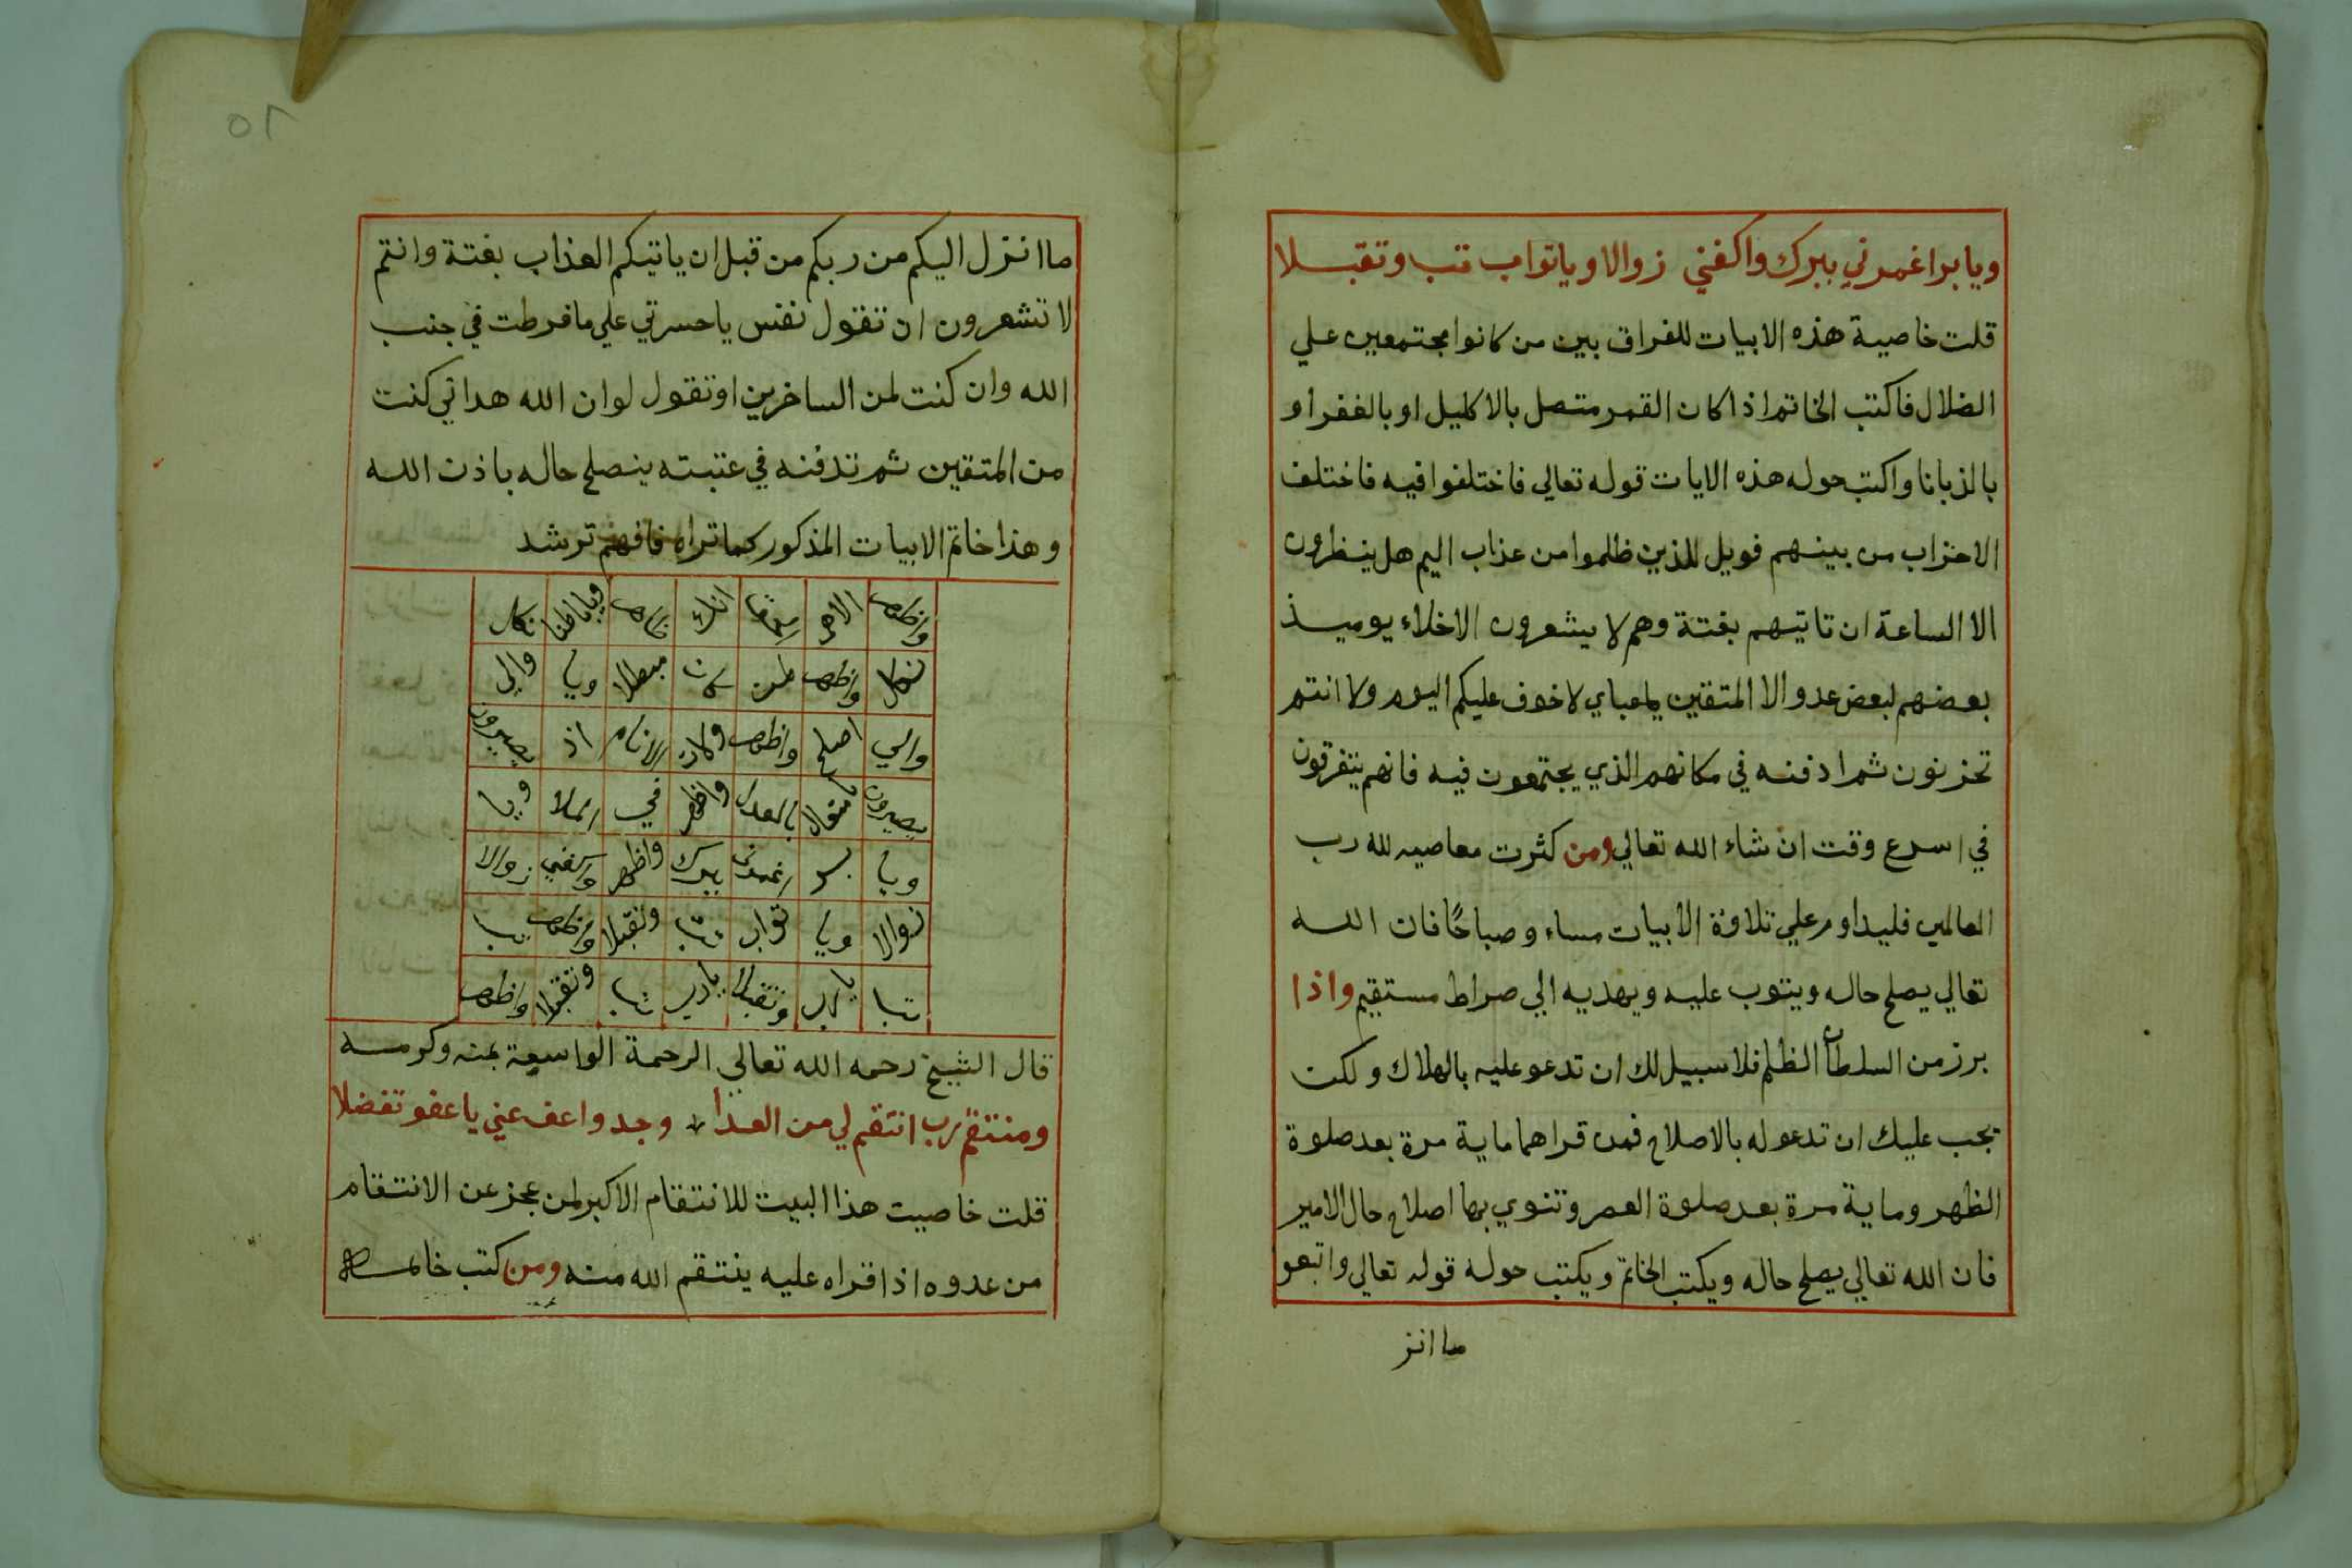 ويا بر اغمرني ببرك واكفني زوالا ويا تواب تب وتقبلا
قلت خاصية هذه الابيات للفراق بين من كانوا مجتمعين علي
الضلال فاكتب الخاتم اذا كان القمر متصل بالاكليل او بالغفر او
بالزبانا واكتب حوله هذه الايات قوله تعالي فاختلفوا فيه فاختلف
الاحزاب من بينهم فويل للذين ظلموا من عذاب اليم هل ينظرون
الا الساعة ان تاتيهم بغتة وهم لا يشعرون الاخلاء يوميذ
بعضهم لبعض عدو الا المتقين يا عباي لا خوف عليكم اليوم ولا انتم
تحزنون ثم ادفنه في مكانهم الذي يجتمعون فيه فانهم يتفرقون
في اسرع وقت ان شاء الله تعالي ومن كثرت معاصيه لله رب
العالمين فليداوم علي تلاوة الابيات مساء وصباحًا فان الله
تعالي يصلح حاله ويتوب عليه ويهديه الي صراط مستقيم واذا
برز من السلطان الظلم فلا سبيل لك ان تدعو عليه بالهلاك ولكن
يجب عليك ان تدعو له بالاصلاح فمن قراهما ماية مرة بعد صلوة
الظهر وماية مرة بعد صلوة العصر وتنوي بها اصلاح حال الامير
فان الله تعالي يصلح حاله ويكتب الخاتم ويكتب حوله قوله تعالي واتبعو
ما انز
٥٨
ما انزل اليكم من ربكم من قبل ان ياتيكم العذاب بغتة وانتم
لا تشعرون ان تقول نفس يا حسرتي علي ما فرطت في جنب
الله وان كنت لمن الساخرين او تقول لو ان الله هداني كنت
من المتقين ثم تدفنه في عتبته ينصلح حاله باذن الله
وهذا خاتم الابيات المذكور كما تراه فافهم ترشد
واظهر الامر انك ويا باطنا بكل
بكل واظهر مبطلا ويا والي
والي اصلح واظهر وكان الانام اذ يصيرون
يصيرون بالعدل واظهر في الملا ويا
ويا بر اغمرني ببرك واظهر واكفني زوالا
زوالا ويا تواب تب وتقبلا واظهر
تب يا رب وتقبلا يا رب تب وتقبلا واظهر
قال الشيخ رحمه الله تعالي الرحمة الواسعة بمنه وكرمه
ومنتقم رب انتقم لي من العدا وجد واعف عني يا عفو تفضلا
قلت خاصيت هذا البيت للانتقام الاكبر لمن عجز عن الانتقام
من عدوه اذا قراه عليه ينتقم الله منه ومن كتب خاتمه